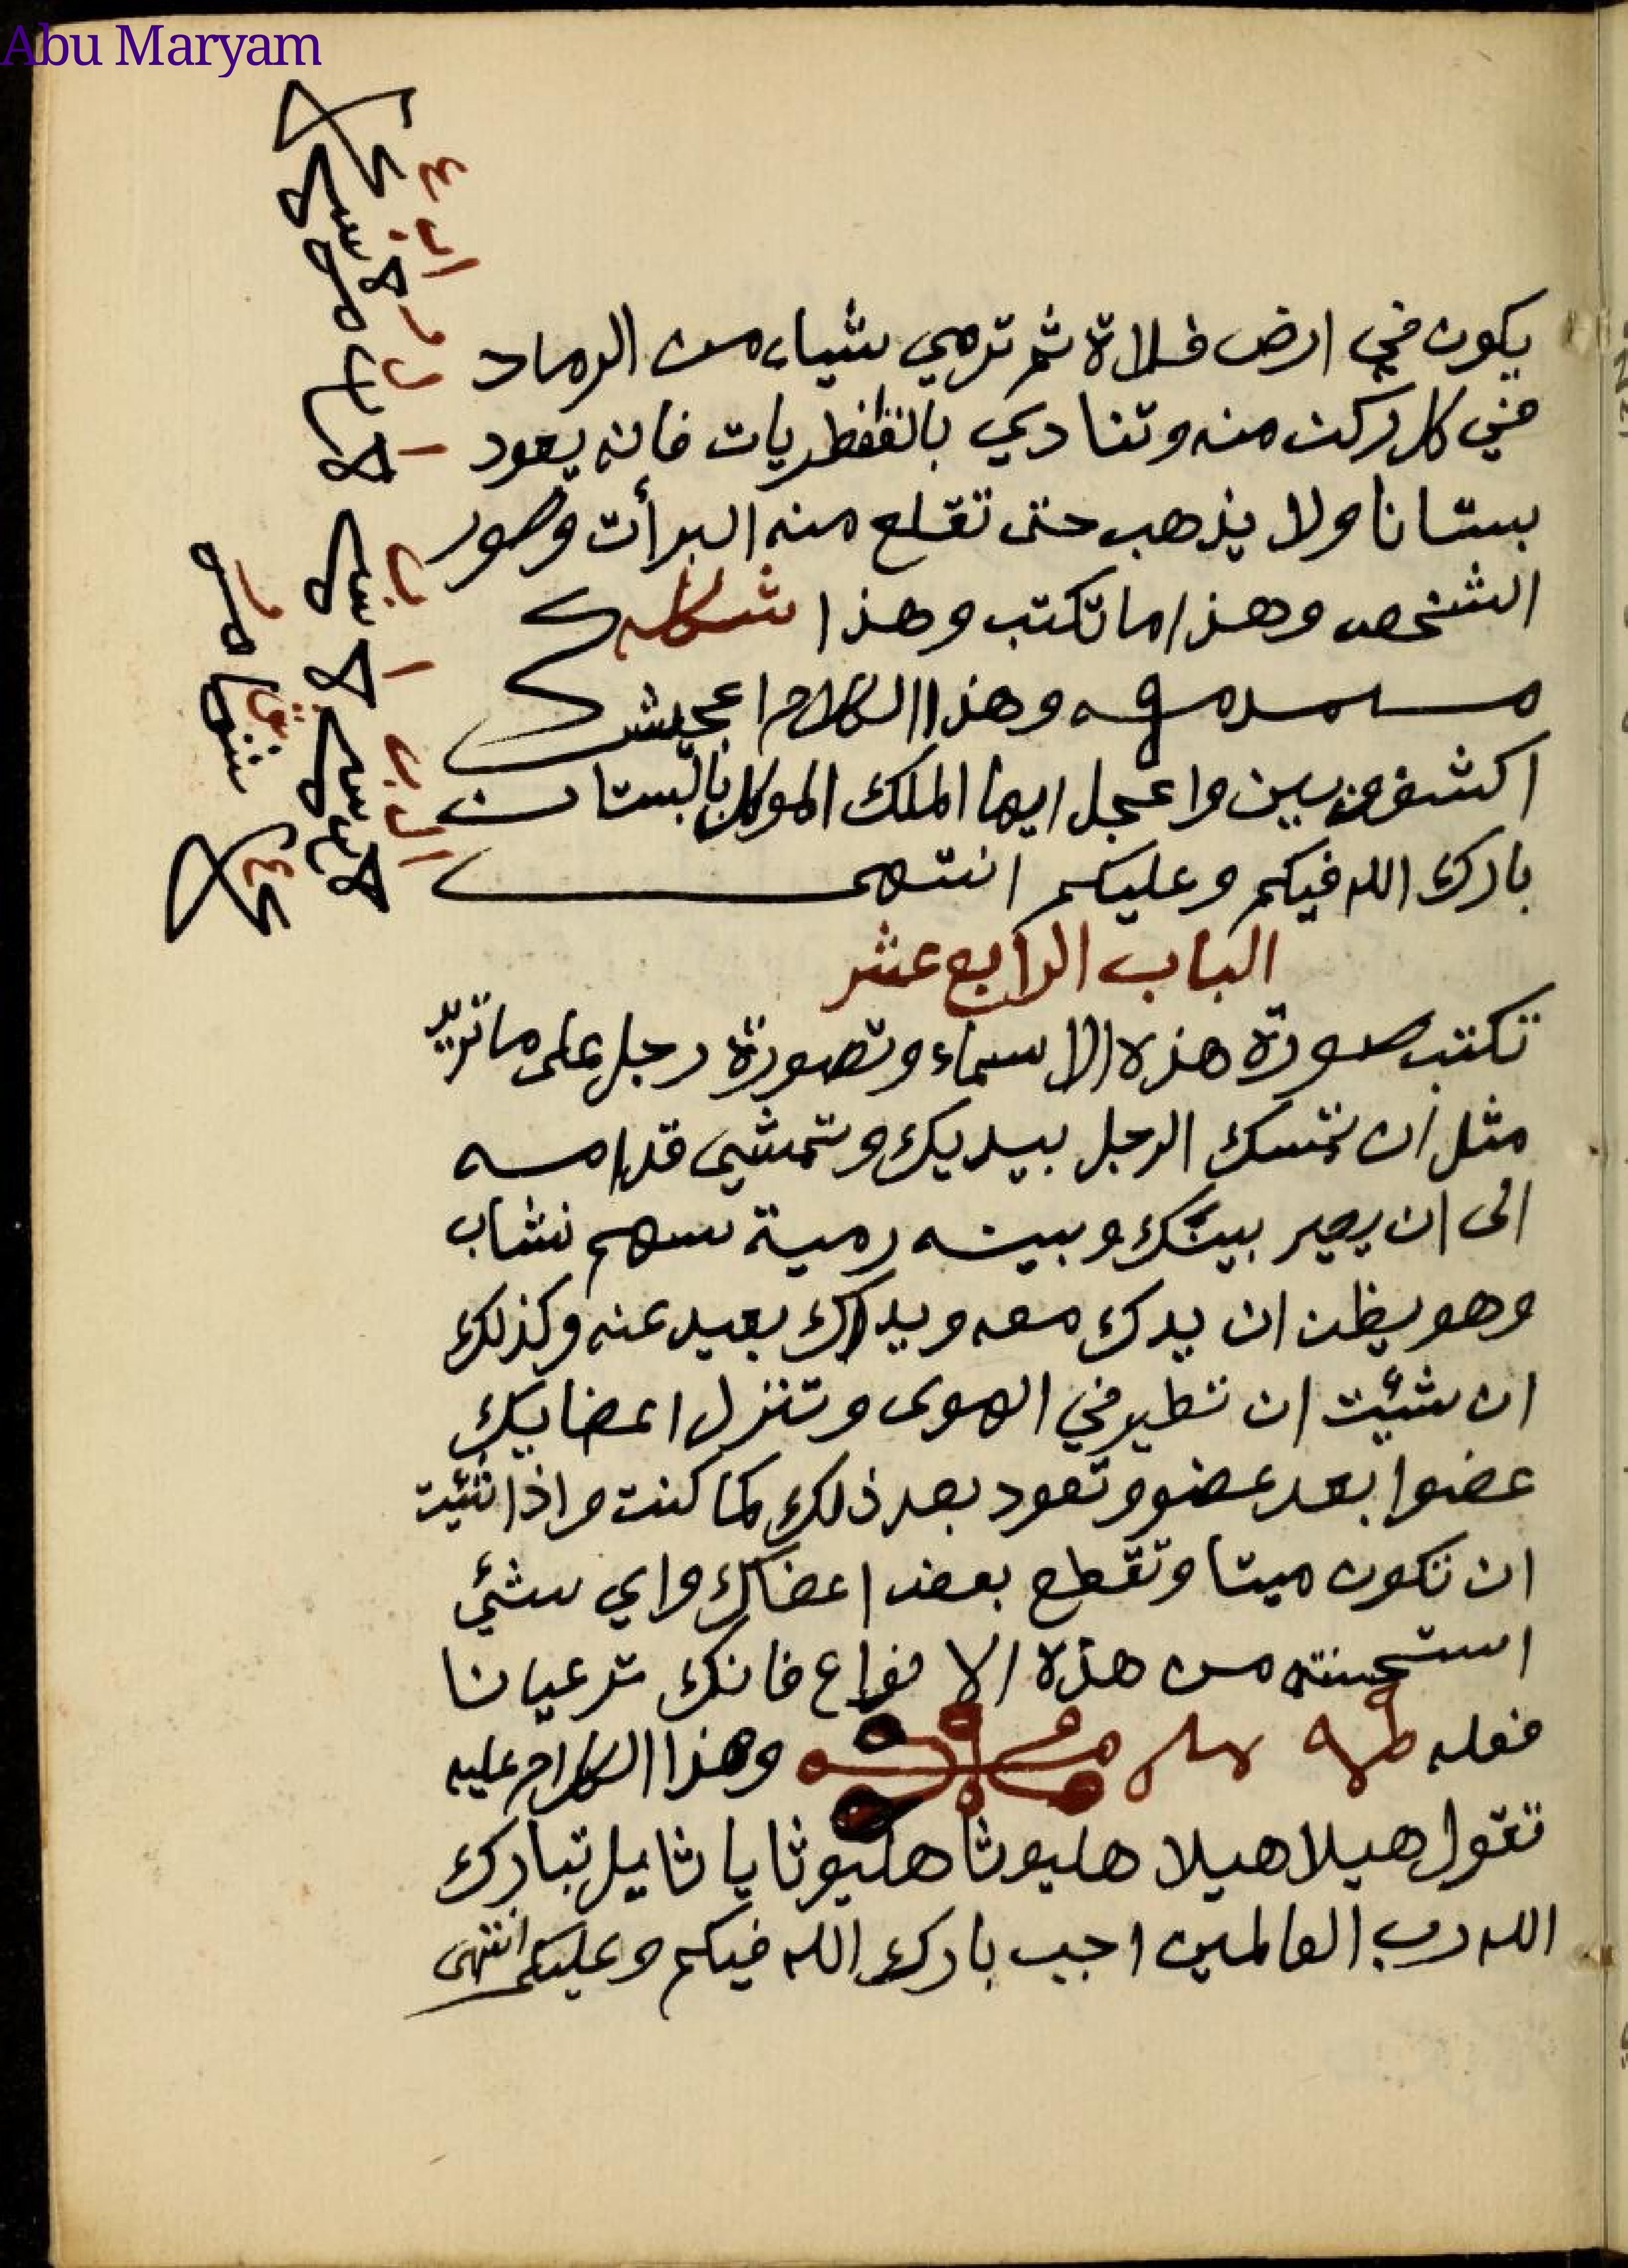 Abu Maryam
يكون في ارض فلاة ثم ترمي شياء من الرماد
في كل ركن منه وتنادي يات فانه يعود
بستانا ولا يذهب حتى تقلع منه البرأت وصور
الشخص وهذا ما تكتب وهذا شكله
وهذا الكلام
اكشف واعجل ايها الملك الموكل بالبستان
بارك الله فيكم وعليكم انتهى
الباب الرابع عشر
تكتب صورة هذه الاسماء وتصورة رجل على ما تريد
مثل ان تمسك الرجل بيديك وتمشي قدامه
الى ان يصير بينك وبينه رمية سهم نشاب
وهو يظن ان يدك معه ويدك بعيد عنه وكذلك
ان شئيت ان تطير في الهوى وتنزل اعضايك
عضوا بعد عضو وتعود بعد ذلك كما كنت واذا شئيت
ان تكون ميتا وتقطع بعض اعضاك واي شئي
استحسنته من هذه الانواع فانك تر عيانا
فعله وهذا الكلام عليه
تقول هيلا هيلا هليوثا هليوثا يا ثاييل تبارك
الله رب العالمين اجب بارك الله فيكم وعليكم انتهى